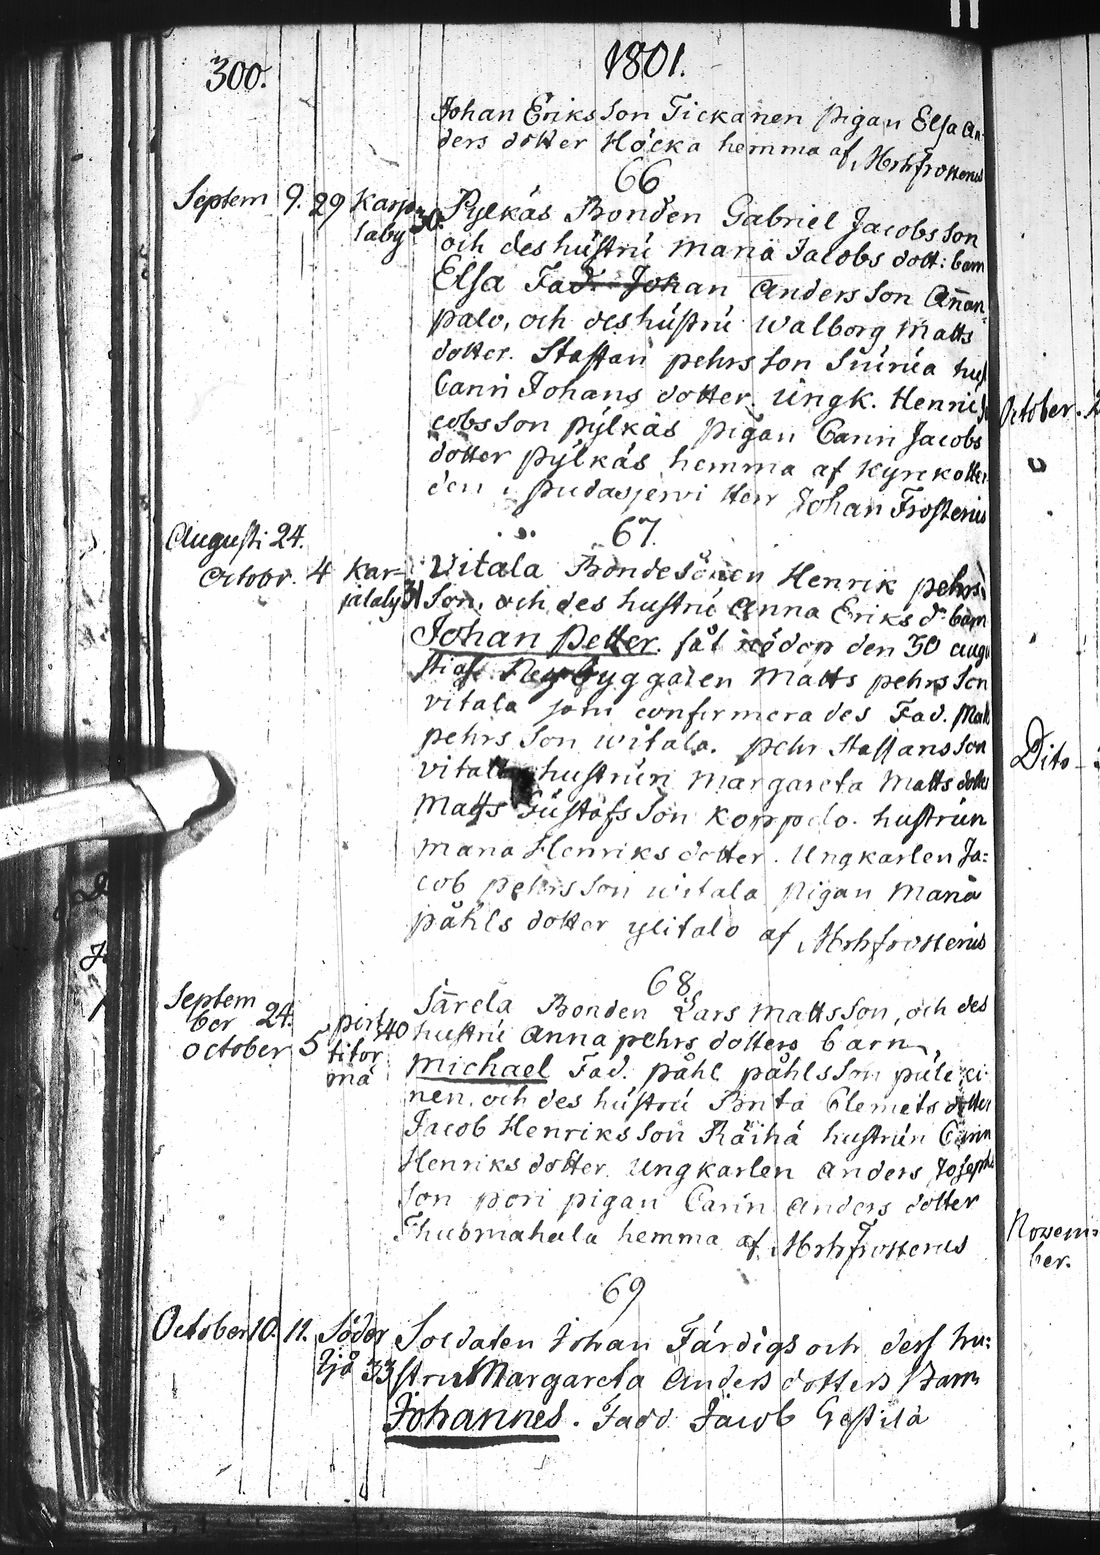 300.
1801.
Johan Eriks Son Tickanen pigan Elsa An-
ders dotter Höcka hemma af Mrhfrosterus
66
Septem 9. 29 Karja
laby 30.
Pylkäs Bonden Gabriel Jacobs Son
och des hustru Maria Jacobs dott: barn
Elsa Fad. Johan Anders Son Annan-
palo, och des hustru Walborg Matts
dotter. Staffan pehrs Son Siurua hus
Carin Johans dotter. Ungk. Henric Ja
cobs Son pylkäs pigan Carin Jacobs
dotter pylkäs hemma af Kyrckoher
den i pudasjerwi Herr Johan Frosterius
67.
Augusti 24.
Octobr. 4 Kar-
jalaby 31
Vitala Bondesonen Henrik pehrs
Son, och des hustru Anna Eriks dr barn
Johan Petter. får nödop den 30 augu
sti af Neybyggaren Matts pehrs Son
vitala som confirmerades Fad. Matt
pehrs Son witala. pehr Staffans Son
vitala hustrun Margareta Matts dotter
Matts Gustafs Son Korpelo. hustrun
Maria Henriks dotter. Ungkarlen Ja:
cob pehrs Son witala pigan Maria
påhls dotter ylitalo af Mrhfrosterius
68
Septem
ber 24.
October 5 pirt
titör
mä 40
Särela Bonden Lars Matts Son, och des
hustru Anna pehrs dotters barn
Michael Fad. påhl påhls Son pule ki
nen. och des hustru Brita Clemets dotter
Jacob Henriks Son Räihä hustrun Carin
Henriks dotter. Ungkarlen Anders Joseph
Son pori pigan Carin Anders dotter
hemma af Mrhfrosterius
69
October 10. 11. Söder
tjå 33
Soldaten Johan Färdigs och dess hu:
stru Margareta Anders dotters Barn
Johannes. Fadd Jacob Gestilä
October.
Dito
Novem-
ber.